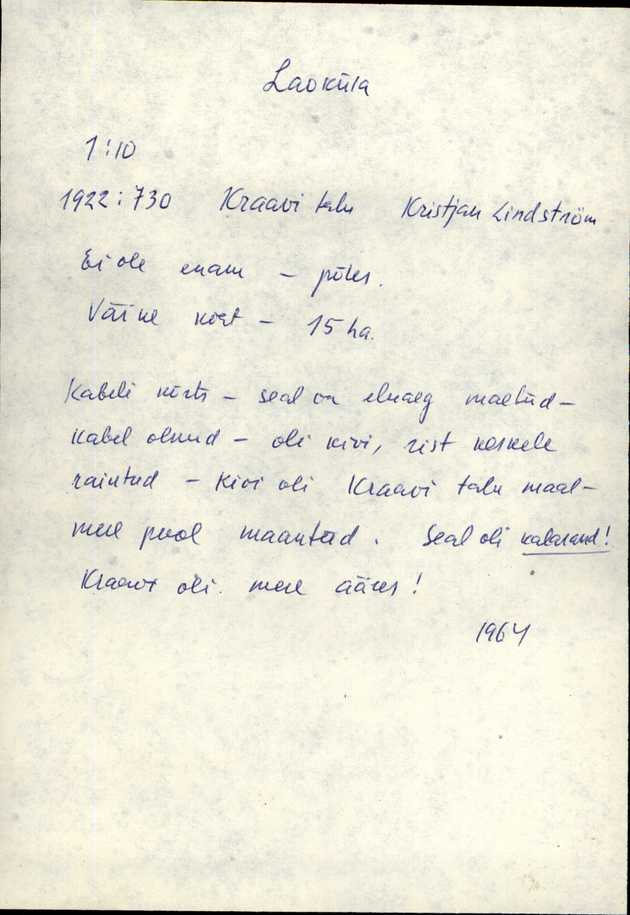 Laoküla
1:10
1922:730 Kraavi talu Kristjan Lindström
Ei ole enam – põles.
Väike koht – 15 ha.
Kabeli – seal on eluaeg maetud –
Kabel olnud – oli kivi, rist keskele
raiutud – Kivi oli Kraavi talu maal –
mere pool maanteed. Seal oli kalarand!
Kraavi oli mere ääres!
1964